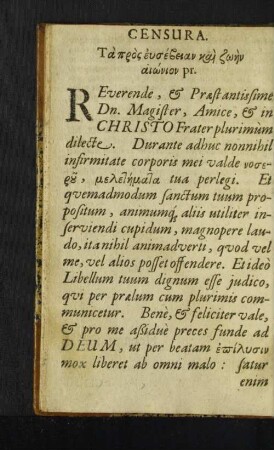 CENSURA.
Τὰ πρὸς ἐυσέβειαν καὶ ζωὴν
αἰώνιον pr.
REverende, & Præstantissime
Dn. Magister, Amice, & in
CHRISTO Frater plurimum
dilecte. Durante adhuc nonnihil
infirmitate corporis mei valde νοσε-
ρῦ, μελετήματα tua perlegi. Et
qvemadmodum sanctum tuum pro-
positum, animumq; aliis utiliter in-
serviendi cupidum, magnopere lau-
do, ita nihil animadverti, qvod vel
me, vel alios posset offendere. Et ideò
Libellum tuum dignum esse judico,
qui per prælum cum plurimis com-
municetur. Benè, & feliciter vale,
& pro me assiduè preces funde ad
DEUM, ut per beatam ἐπίλυσιν
mox liberet ab omni malo: satur
enim